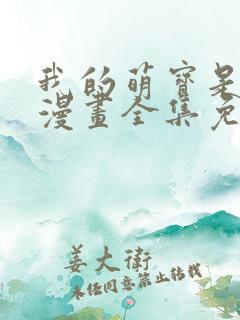 我的萌寶是
漫畫全集免
姜大衛
未经同意禁止转载